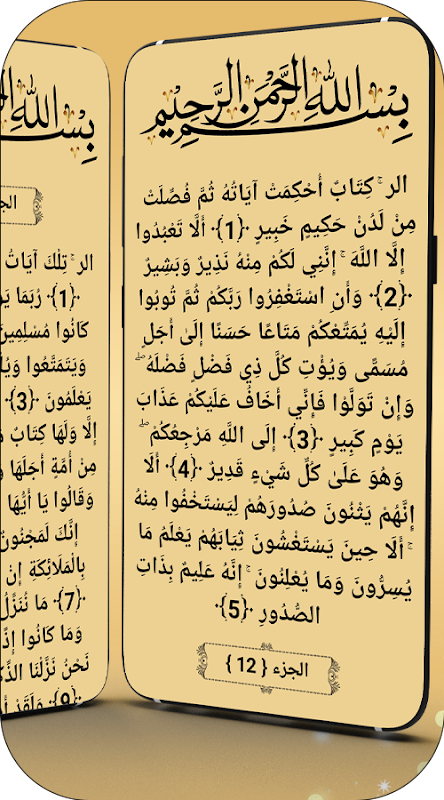 بِسْمِ اللَّهِ الرَّحْمَنِ الرَّحِيمِ
الر ۚ كِتَابٌ أُحْكِمَتْ آيَاتُهُ ثُمَّ فُصِّلَتْ
مِنْ لَدُنْ حَكِيمٍ خَبِيرٍ ﴿1﴾ أَلَّا تَعْبُدُوا
إِلَّا اللَّهَ ۚ إِنَّنِي لَكُمْ مِنْهُ نَذِيرٌ وَبَشِيرٌ
﴿2﴾ وَأَنِ اسْتَغْفِرُوا رَبَّكُمْ ثُمَّ تُوبُوا
إِلَيْهِ يُمَتِّعْكُمْ مَتَاعًا حَسَنًا إِلَىٰ أَجَلٍ
مُسَمًّى وَيُؤْتِ كُلَّ ذِي فَضْلٍ فَضْلَهُ ۖ
وَإِنْ تَوَلَّوْا فَإِنِّي أَخَافُ عَلَيْكُمْ عَذَابَ
يَوْمٍ كَبِيرٍ ﴿3﴾ إِلَى اللَّهِ مَرْجِعُكُمْ ۖ
وَهُوَ عَلَىٰ كُلِّ شَيْءٍ قَدِيرٌ ﴿4﴾ أَلَا
إِنَّهُمْ يَثْنُونَ صُدُورَهُمْ لِيَسْتَخْفُوا مِنْهُ
ۚ أَلَا حِينَ يَسْتَغْشُونَ ثِيَابَهُمْ يَعْلَمُ مَا
يُسِرُّونَ وَمَا يُعْلِنُونَ ۚ إِنَّهُ عَلِيمٌ بِذَاتِ
الصُّدُورِ ﴿5﴾
الجزء { 12 }
بِسْمِ اللَّهِ
الر ۚ تِلْكَ آيَاتُ
﴿1﴾ رُبَمَا
كَانُوا مُسْلِمِينَ
وَيَتَمَتَّعُوا
يَعْلَمُونَ ﴿3﴾
إِلَّا وَلَهَا كِتَابٌ
مِنْ أُمَّةٍ أَجَلَهَا
وَقَالُوا يَا أَيُّهَا
إِنَّكَ لَمَجْنُونٌ
بِالْمَلَائِكَةِ إِنْ
﴿7﴾ مَا نُنَزِّلُ
وَمَا كَانُوا إِذًا
نَحْنُ نَزَّلْنَا
﴿9﴾ وَلَقَدْ